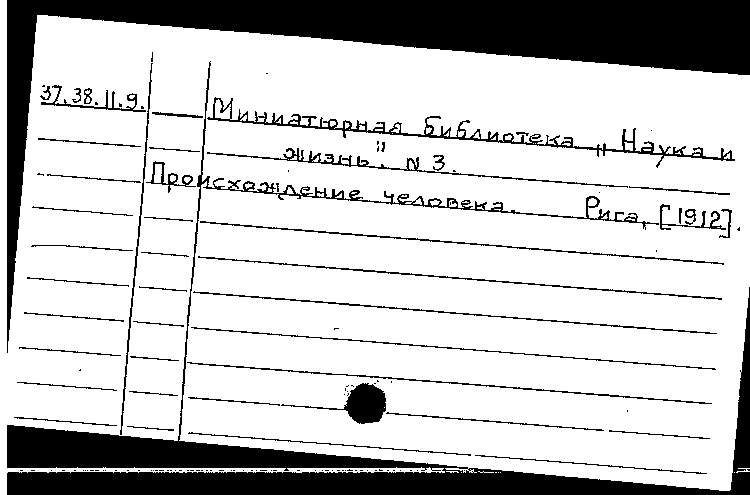 37.38.II.9. Миниатюрная библиотека „Наука и
жизнь". N 3.
Происхождение человека. Рига, [1912].